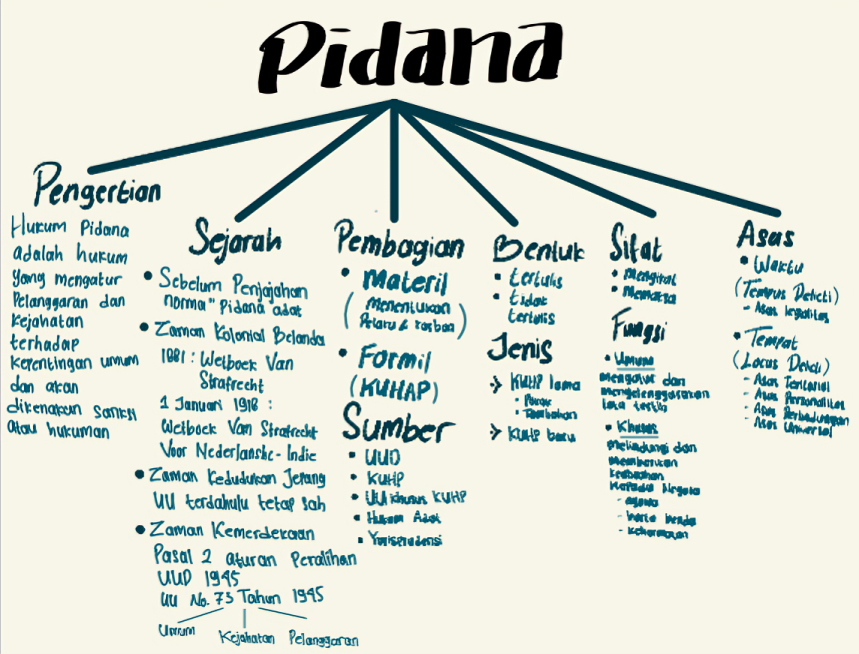 Pidana
Pengertian
Hukum Pidana
adalah hukum
yang mengatur
Pelanggaran dan
Kejahatan
terhadap
Kepentingan umum
dan akan
dikenakan sanksi
atau hukuman
Sejarah
• Sebelum Penjajahan
norma" Pidana adat
• Zaman Kolonial Belanda
1881 : Wetboek Van
Strafrecht
1 Januari 1918 :
Wetboek Van Strafrecht
Voor Nederlansche-Indie
• Zaman Kedudukan Jepang
UU terdahulu tetap sah
• Zaman Kemerdekaan
Pasal 2 aturan Peralihan
UUD 1945
UU No. 73 Tahun 1945
Umum Kejahatan Pelanggaran
Pembagian
• Materil
(menentukan
Pelaku & korban)
• Formil
(KUHAP)
Sumber
• UUD
• KUHP
• UU khusus KUHP
• Hukum Adat
• Yurisprudensi
Bentuk
• tertulis
• tidak
tertulis
Jenis
→ KUHP lama
• Pokok
• Tambahan
→ KUHP baru
Sifat
• Mengikat
• Memaksa
Fungsi
• Umum
mengatur dan
menyelenggarakan
tata tertib
• Khusus
melindungi dan
memberikan
Kepada
- harta benda
- kehormatan
Asas
• Waktu
(Tempus Delicti)
- Asas legalitas
• Tempat
(Locus Delicti)
- Asas Teritorial
- Asas Personalitas
- Asas Perlindungan
- Asas Universal